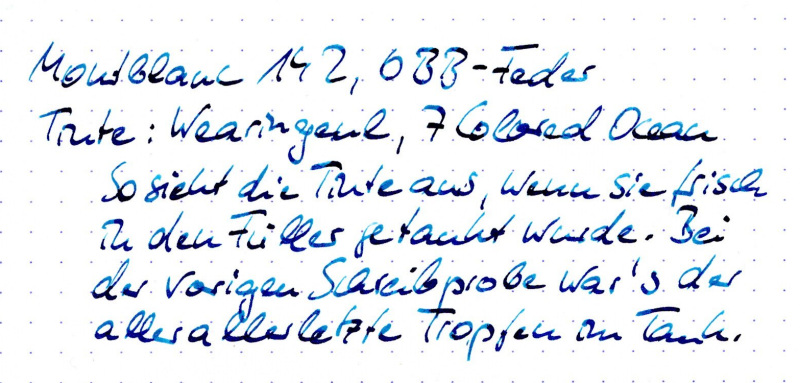 Montblanc 142, OBB-Feder
Tinte: Wearingeul, 7 Colored Ocean
So sieht die Tinte aus, wenn sie frisch
in den Füller getankt wurde. Bei
der vorigen Schreibprobe war's der
allerallerletzte Tropfen im Tank.